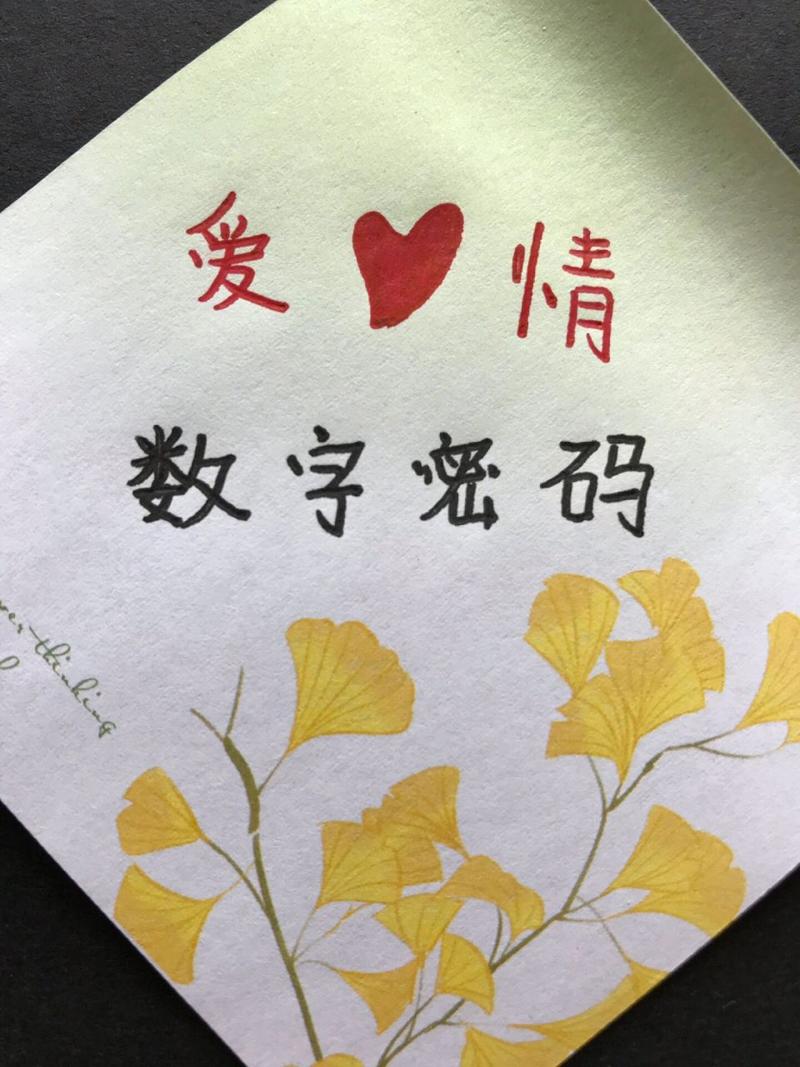 爱❤情
数字密码
thinking